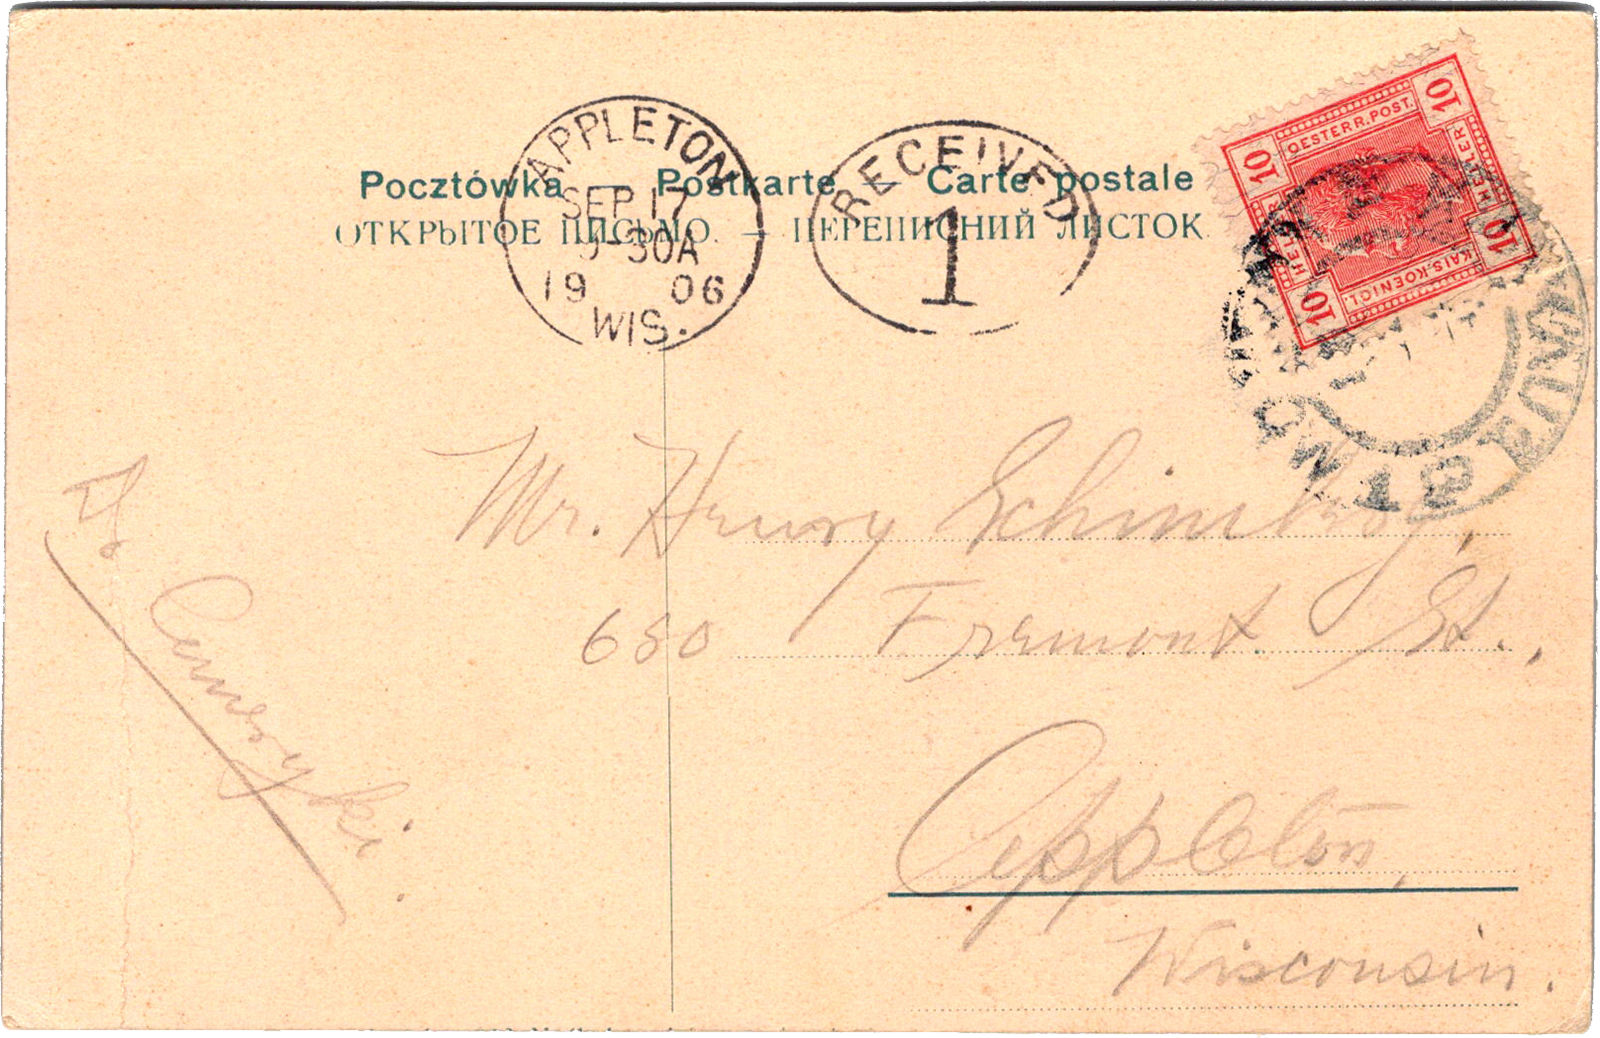 Pocztówka — Postkarte — Carte postale
ОТКРЫТОЕ ПИСЬМО. — ПЕРЕПИСНИЙ ЛИСТОК
APPLETON
SEP 17
-30A
19 06
WIS.
RECEIVED
1
10 OESTERR. POST. 10
HELLER
10 KAIS. KOENIGL. 10
Mr. Henry
Fremont St.,
Appleton,
Wisconsin.